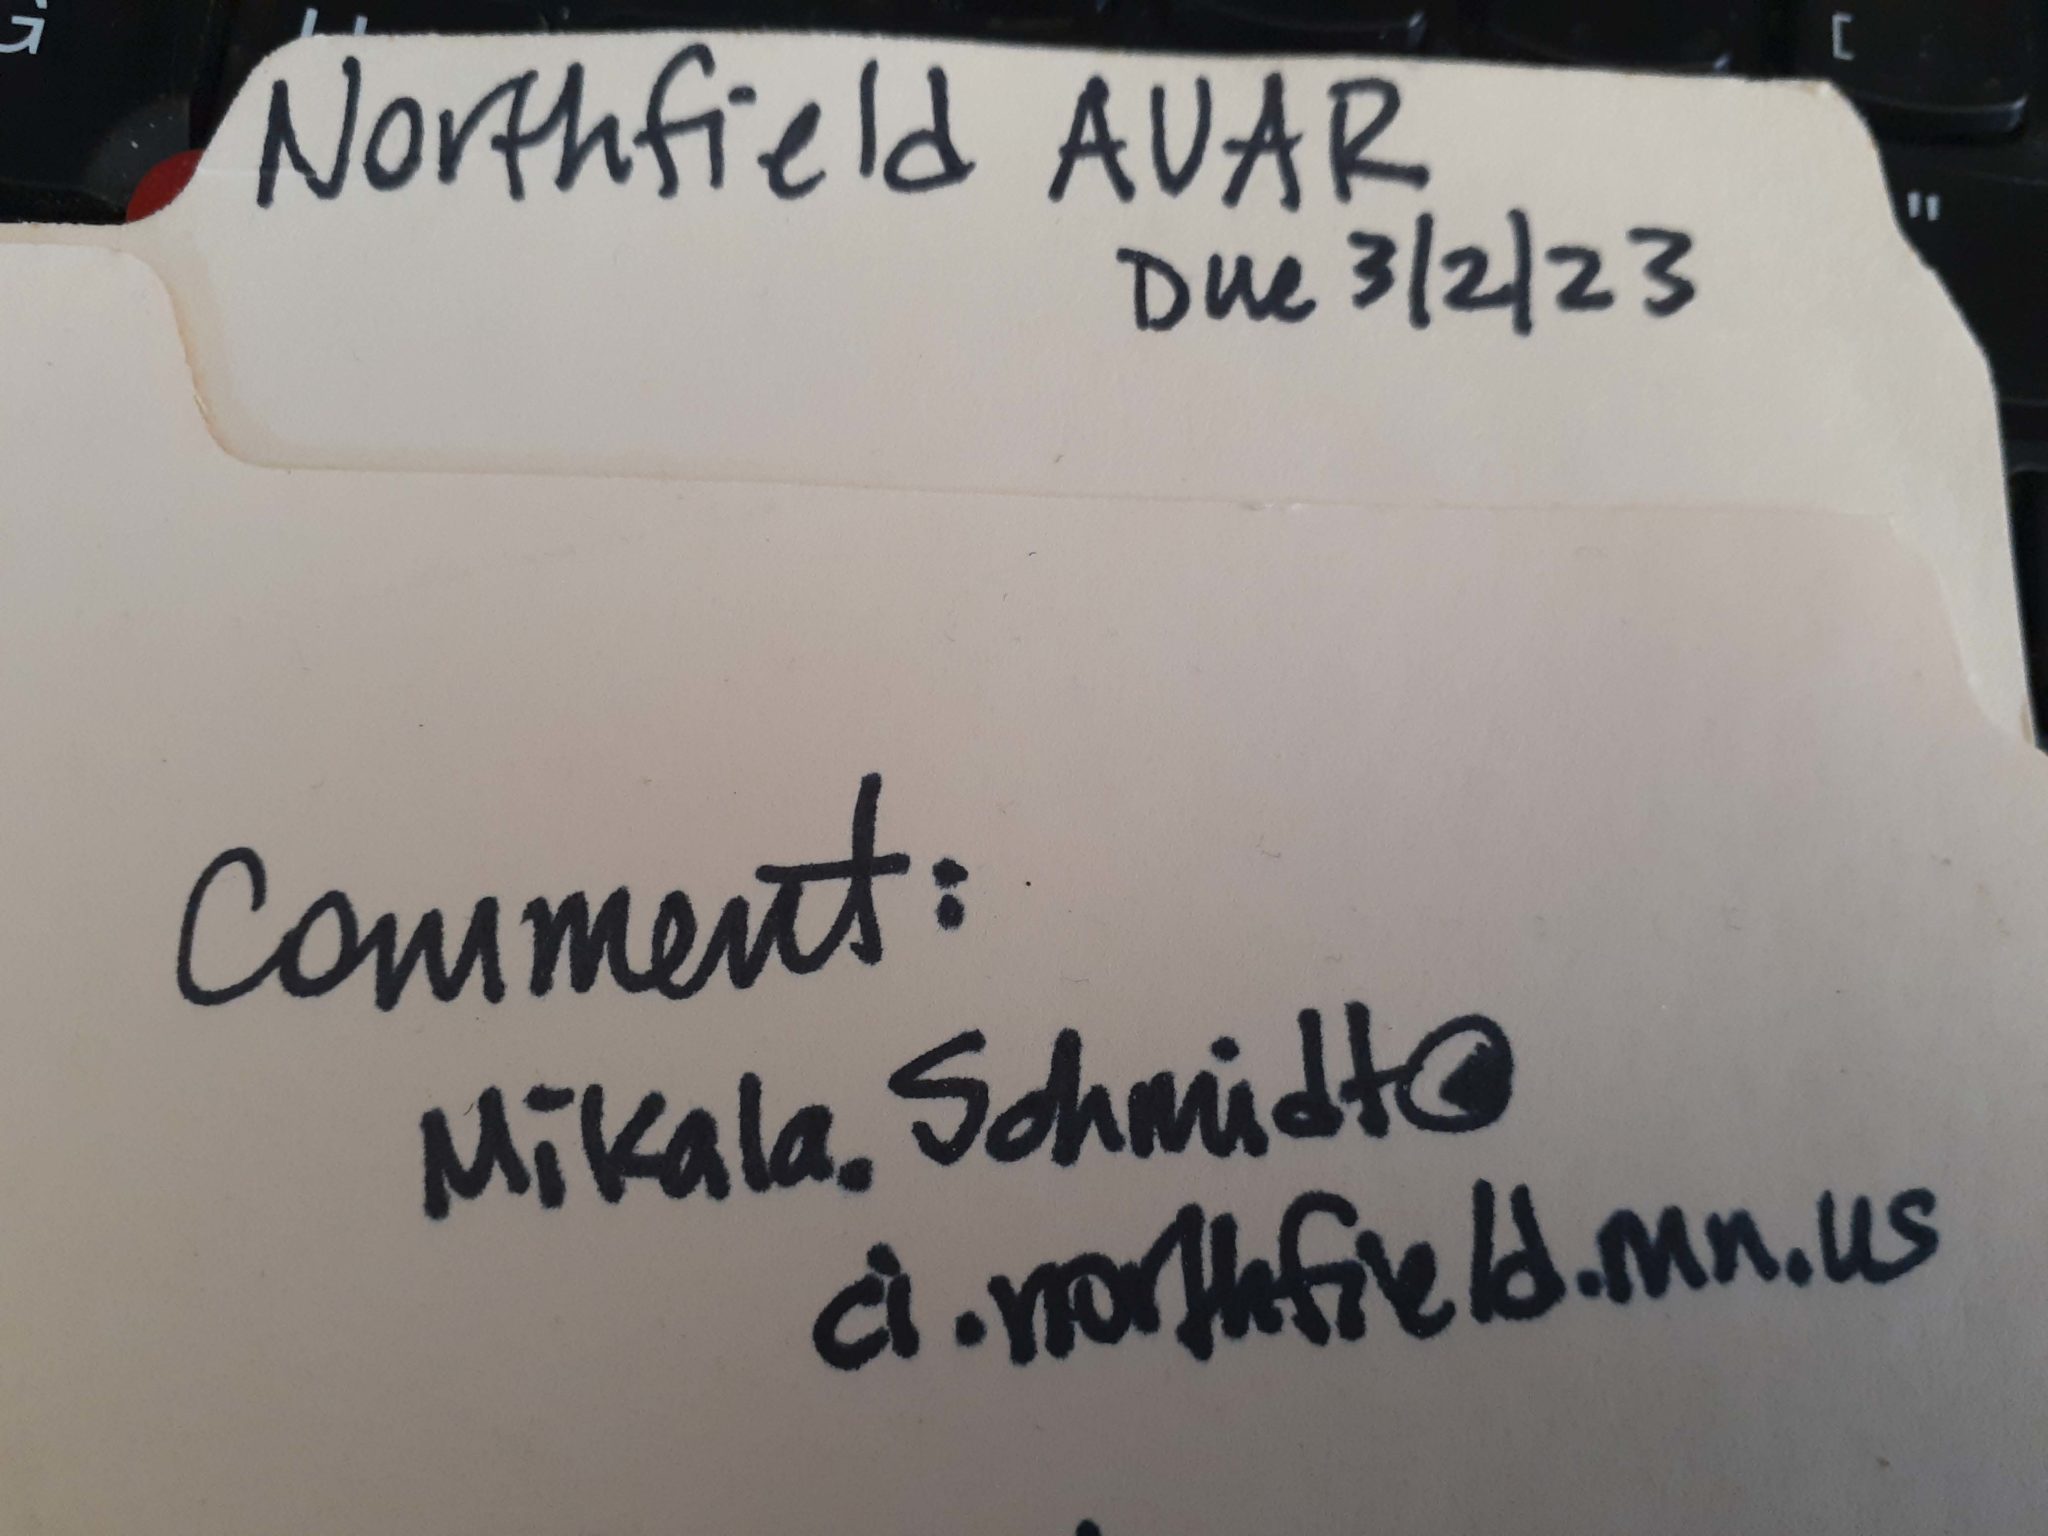 G
[
"
Northfield AUAR
Due 3/2/23
Comment:
Mikala.Schmidt@
ci.northfield.mn.us